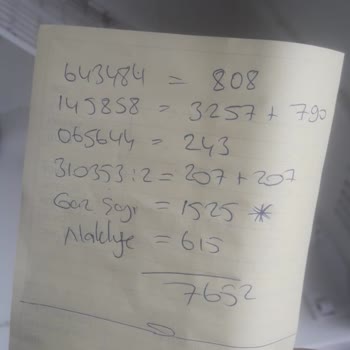 643484 = 808
145858 = 3257 + 790
065644 = 243
310353:2 = 207 + 207
= 1525 *
Nakliye = 615
7652